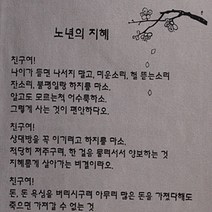 노년의 지혜
친구여!
나이가 들면 나서지 말고, 미운소리, 헐 뜯는소리
잔소리, 불평일랑 하지를 마소.
알고도 모르는척 어수룩하소.
그렇게 사는 것이 편안하다오.
친구여!
상대방을 꼭 이기려고 하지를 마소.
적당히 져주구려, 한 걸음 물러서서 양보하는 것
지혜롭게 살아가는 비결이라오.
친구여!
돈, 돈 욕심을 버리시구려 아무리 많은 돈을 가졌다해도
죽으면 가져갈 수 없는 것